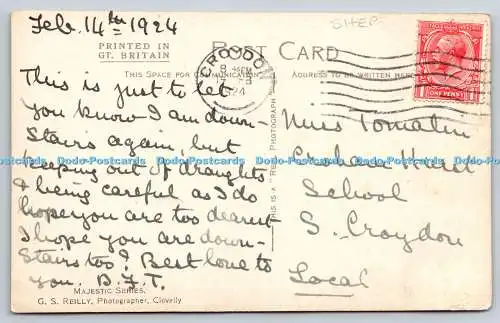 Feb. 14th 1924
SHEP
PRINTED IN
GT. BRITAIN
POST CARD
THIS SPACE FOR COMMUNICATION
ADDRESS TO BE WRITTEN HERE
CROYDON
24
ONE PENNY
This is just to let
you know I am down-
stairs again, but
keeping out of draughts
& being careful as I do
hope you are too dearest
I hope you are down-
stairs too! Best love to
you. D.F.T.
THIS IS A "REAL PHOTOGRAPH"
Miss Tomalin
Croham Hurst
School
S. Croydon
Local
MAJESTIC SERIES.
G. S. REILLY, Photographer, Clovelly
Dodo-Postcards Dodo-Postcards Dodo-Postcards Dodo-Postcards Dodo-Postcards Dodo-Postcards